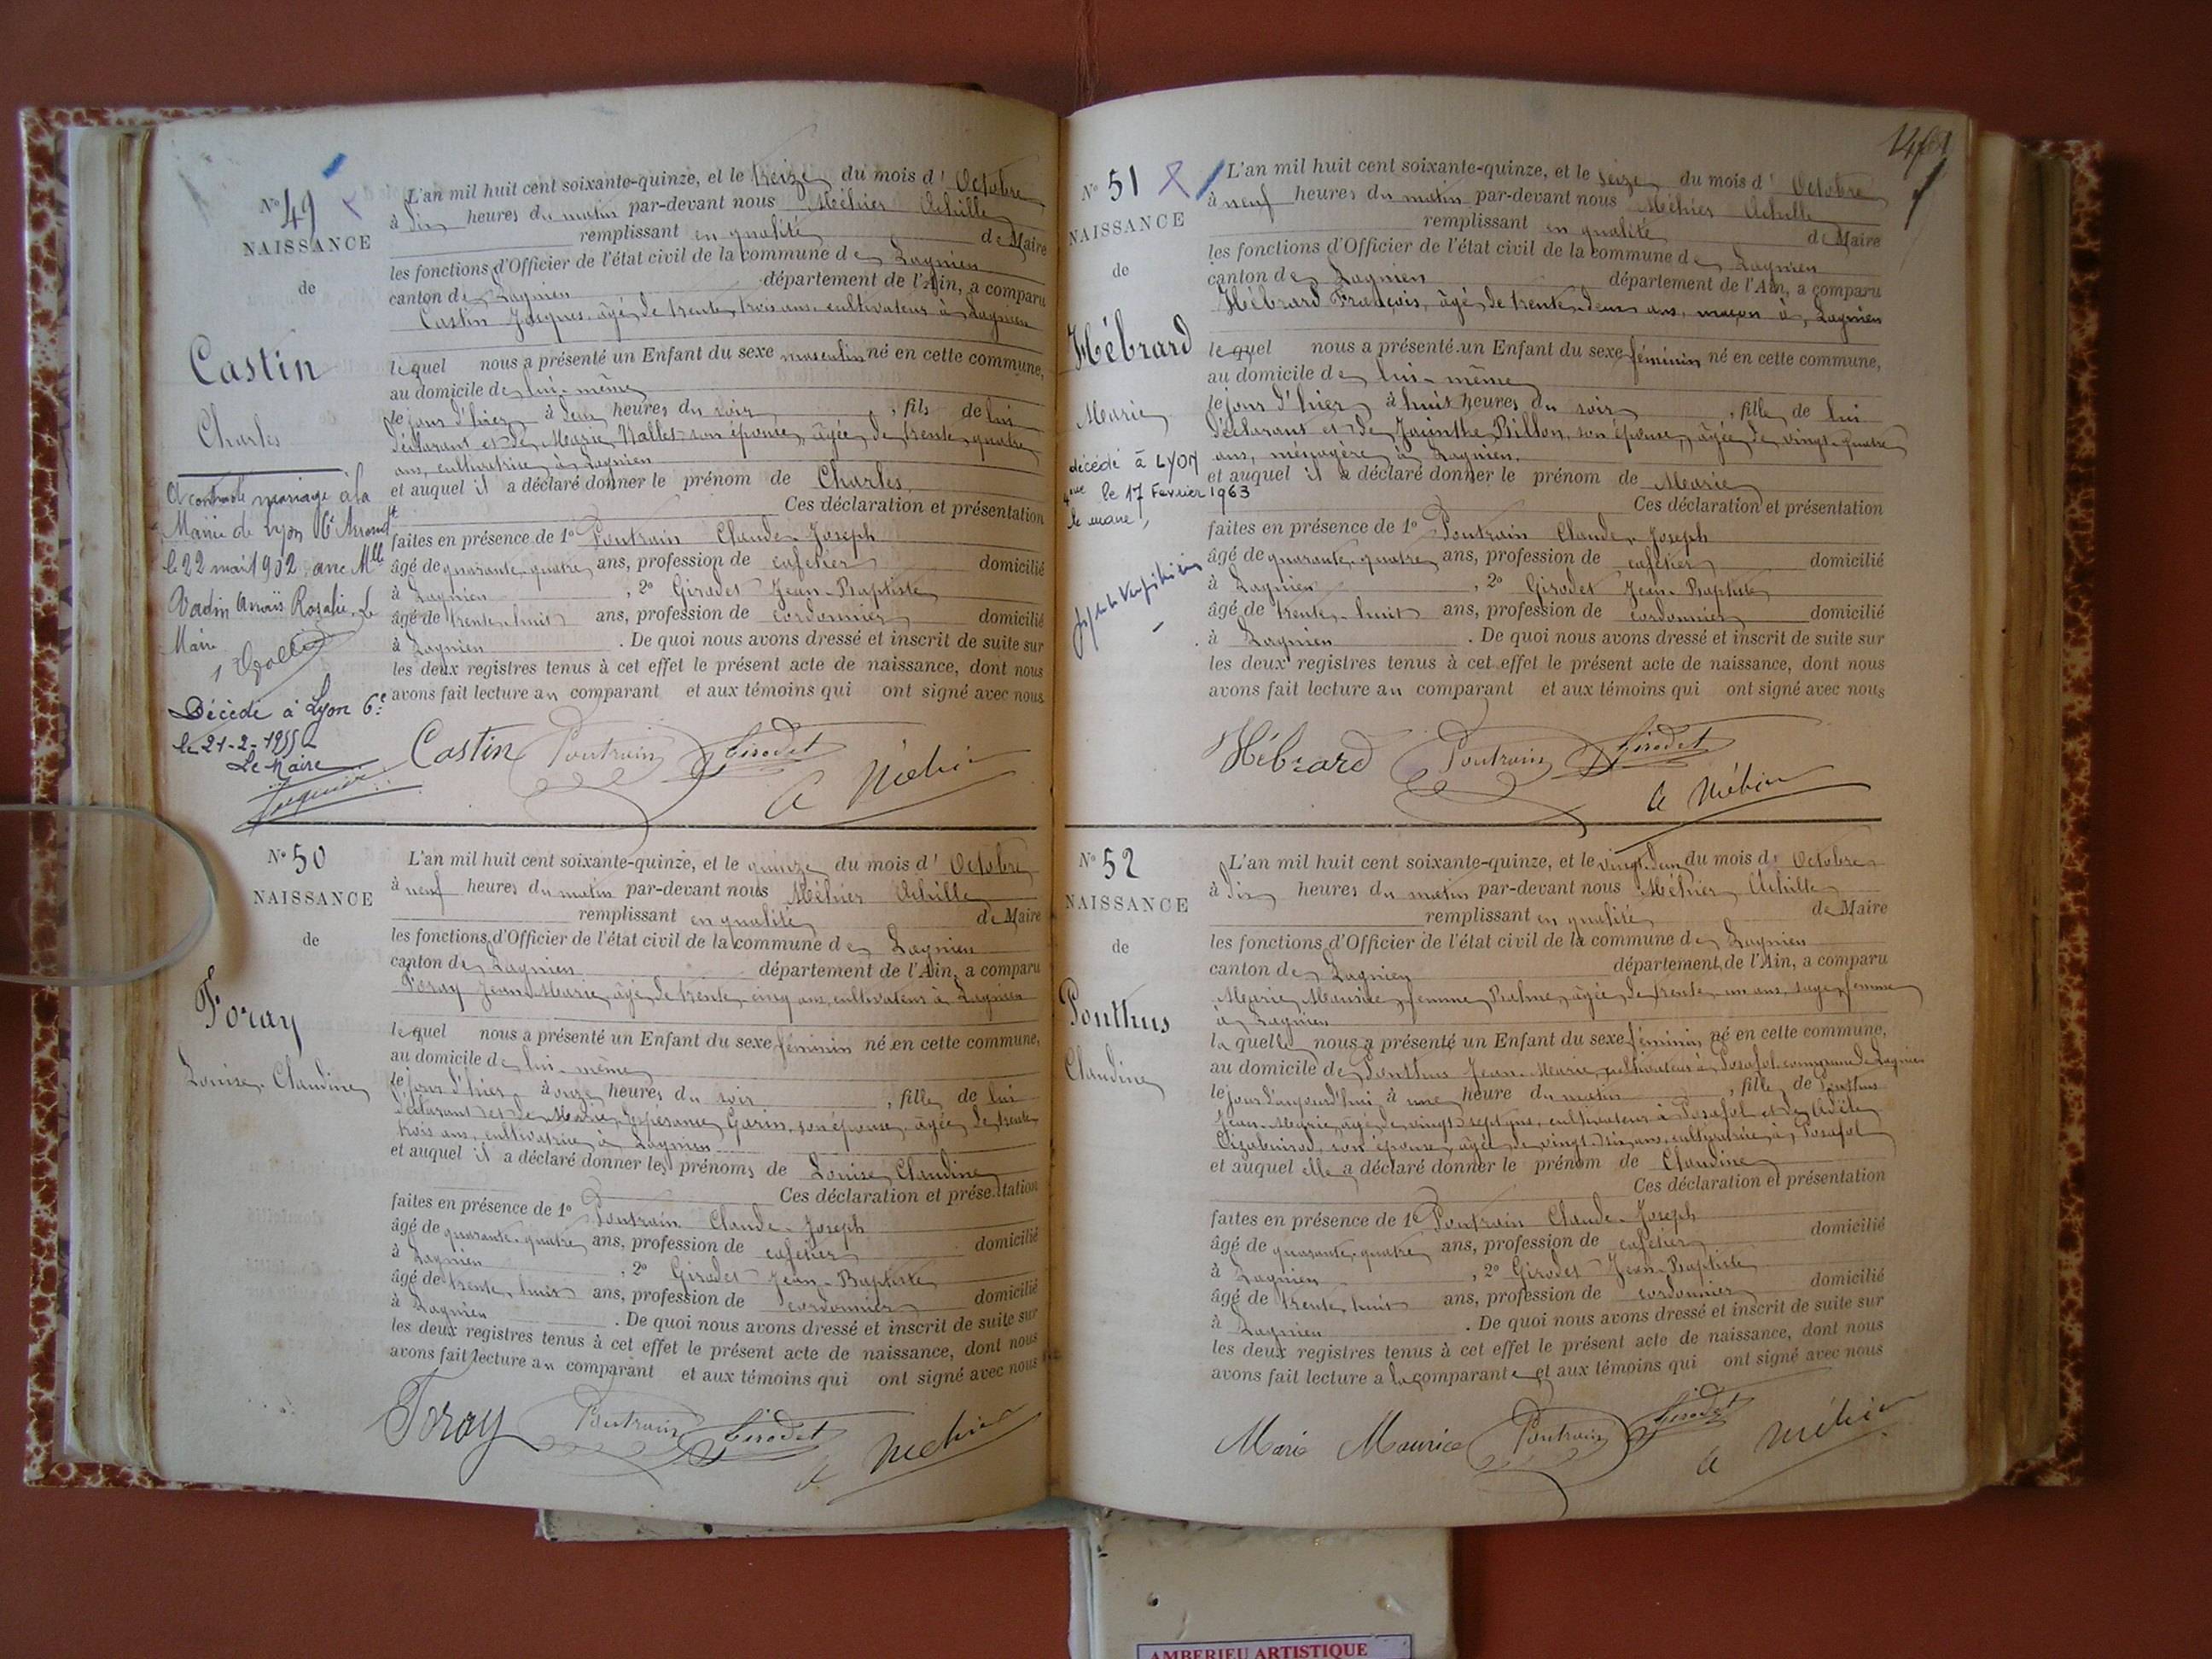 N° 49
NAISSANCE
de
Castin
Charles
A contracté mariage à la
Mairie de Lyon 6e Arrondt
le 22 mai 1902 avec Mlle
Vadin Anaïs Rosalie. Le
Maire
Décédé à Lyon 6e
le 21-2-1955
Le Maire
L'an mil huit cent soixante-quinze, et le treize du mois d' Octobre
à dix heures du matin par-devant nous Méhier Achille
remplissant en qualité de Maire
les fonctions d'Officier de l'état civil de la commune de Lagnieu
canton de Lagnieu département de l'Ain, a comparu
Castin Jacques, âgé de trente trois ans, cultivateur à Lagnieu
lequel nous a présenté un Enfant du sexe masculin né en cette commune,
au domicile de lui-même
le jour d'hier à deux heures du soir, fils de lui
déclarant et de Marie Nallet son épouse, âgée de trente quatre
ans, cultivatrice à Lagnieu
et auquel il a déclaré donner le prénom de Charles
Ces déclaration et présentation
faites en présence de 1° Poutrain Claude-Joseph
âgé de quarante-quatre ans, profession de cafetier domicilié
à Lagnieu, 2° Girodet Jean-Baptiste
âgé de trente-huit ans, profession de cordonnier domicilié
à Lagnieu. De quoi nous avons dressé et inscrit de suite sur
les deux registres tenus à cet effet le présent acte de naissance, dont nous
avons fait lecture au comparant et aux témoins qui ont signé avec nous
Castin Poutrain Girodet
A Méhier
N° 50
NAISSANCE
de
Foray
Louise-Claudine
L'an mil huit cent soixante-quinze, et le quinze du mois d' Octobre
à neuf heures du matin par-devant nous Méhier Achille
remplissant en qualité de Maire
les fonctions d'Officier de l'état civil de la commune de Lagnieu
canton de Lagnieu département de l'Ain, a comparu
Foray Jean Marie, âgé de trente-cinq ans, cultivateur à Lagnieu
lequel nous a présenté un Enfant du sexe féminin né en cette commune,
au domicile de lui-même
le jour d'hier, à onze heures du soir, fille de lui
déclarant et de Marie Espérance Garin, son épouse, âgée de trente
trois ans, cultivatrice à Lagnieu
et auquel il a déclaré donner les prénoms de Louise Claudine
Ces déclaration et présentation
faites en présence de 1° Poutrain Claude-Joseph
âgé de quarante-quatre ans, profession de cafetier domicilié
à Lagnieu, 2° Girodet Jean-Baptiste
âgé de trente-huit ans, profession de cordonnier domicilié
à Lagnieu. De quoi nous avons dressé et inscrit de suite sur
les deux registres tenus à cet effet le présent acte de naissance, dont nous
avons fait lecture au comparant et aux témoins qui ont signé avec nous
Foray Poutrain Girodet
A Méhier
N° 51
NAISSANCE
de
Hébrard
Marie
décédé à LYON
4eme le 17 Fevrier 1963
le maire,
L'an mil huit cent soixante-quinze, et le seize du mois d' Octobre
à neuf heures du matin par-devant nous Méhier Achille
remplissant en qualité de Maire
les fonctions d'Officier de l'état civil de la commune de Lagnieu
canton de Lagnieu département de l'Ain, a comparu
Hébrard François, âgé de trente-deux ans, maçon à Lagnieu
lequel nous a présenté un Enfant du sexe féminin né en cette commune,
au domicile de lui-même
le jour d'hier à huit heures du soir, fille de lui
déclarant et de Jacinthe Billon, son épouse, âgée de vingt-quatre
ans, ménagère à Lagnieu.
et auquel il a déclaré donner le prénom de Marie
Ces déclaration et présentation
faites en présence de 1° Poutrain Claude-Joseph
âgé de quarante-quatre ans, profession de cafetier domicilié
à Lagnieu, 2° Girodet Jean-Baptiste
âgé de trente-huit ans, profession de cordonnier domicilié
à Lagnieu. De quoi nous avons dressé et inscrit de suite sur
les deux registres tenus à cet effet le présent acte de naissance, dont nous
avons fait lecture au comparant et aux témoins qui ont signé avec nous
Hébrard Poutrain Girodet
A Méhier
N° 52
NAISSANCE
de
Ponthus
Claudine
L'an mil huit cent soixante-quinze, et le vingt-deux du mois d' Octobre
à dix heures du matin par-devant nous Méhier Achille
remplissant en qualité de Maire
les fonctions d'Officier de l'état civil de la commune de Lagnieu
canton de Lagnieu département de l'Ain, a comparu
Marie Maurice, femme âgée de trente-un ans, sage-femme
à Lagnieu
laquelle nous a présenté un Enfant du sexe féminin né en cette commune,
au domicile de Ponthus Jean-Marie, cultivateur à Posafol commune de Lagnieu
le jour d'aujourd'hui à une heure du matin, fille de Ponthus
Jean-Marie, âgé de vingt-sept ans, cultivateur à Posafol et de Adèle
son épouse, âgée de vingt-six ans, cultivatrice à Posafol
et auquel elle a déclaré donner le prénom de Claudine
Ces déclaration et présentation
faites en présence de 1° Poutrain Claude-Joseph
âgé de quarante-quatre ans, profession de cafetier domicilié
à Lagnieu, 2° Girodet Jean-Baptiste
âgé de trente huit ans, profession de cordonnier domicilié
à Lagnieu. De quoi nous avons dressé et inscrit de suite sur
les deux registres tenus à cet effet le présent acte de naissance, dont nous
avons fait lecture a la comparante et aux témoins qui ont signé avec nous
Marie Maurice Poutrain Girodet
A Méhier
AMBERIEU ARTISTIQUE